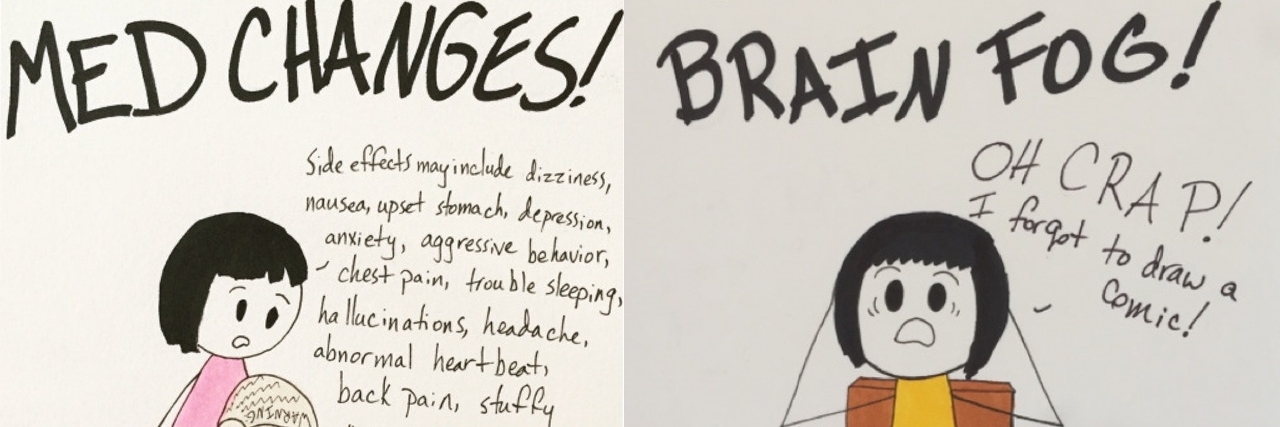 MED CHANGES!
Side effects may include dizziness,
nausea, upset stomach, depression,
anxiety, aggressive behavior,
chest pain, trouble sleeping,
hallucinations, headache,
abnormal heartbeat,
back pain, stuffy
WARNING
BRAIN FOG!
OH CRAP!
I forgot to draw a
comic!